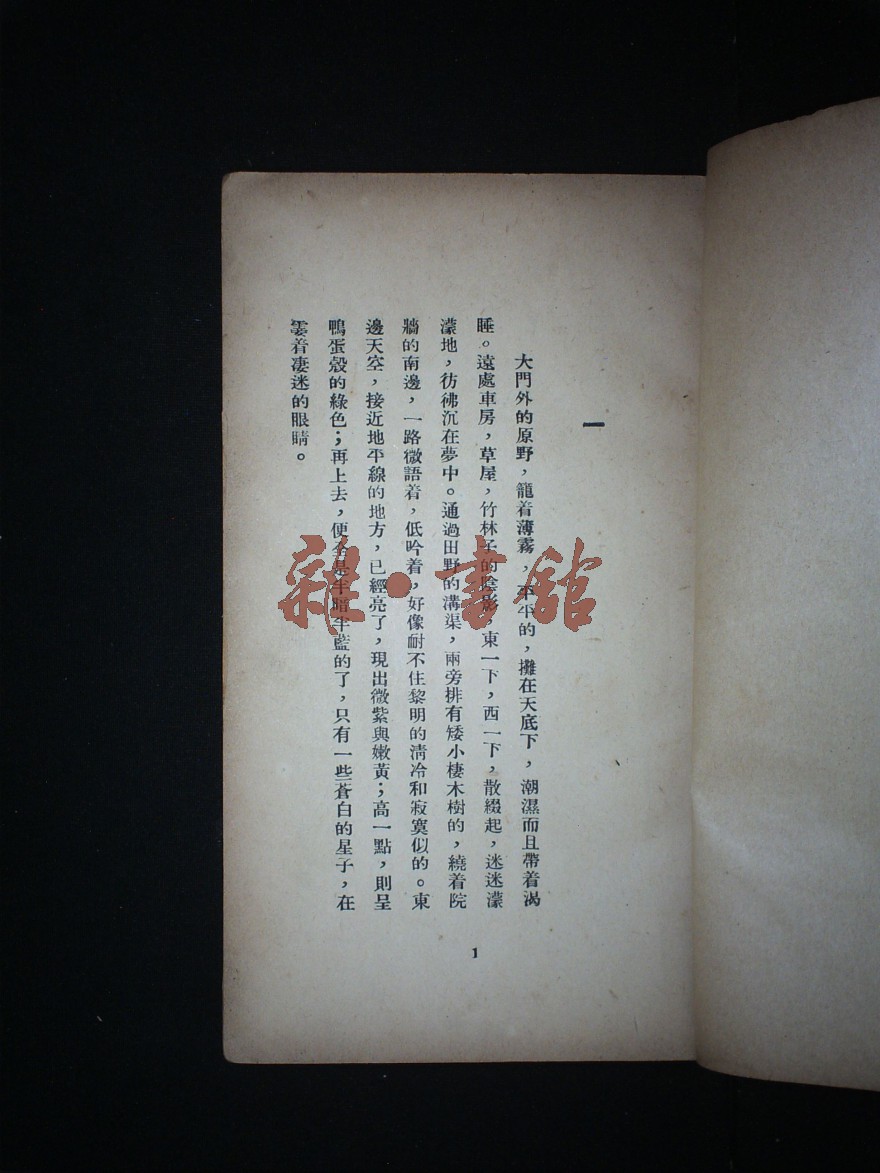 一
大門外的原野，籠着薄霧，平平的，攤在天底下，潮濕而且帶着渴
睡。遠處車房，草屋，竹林子的陰影，東一下，西一下，散綴起，迷迷濛
濛地，彷彿沉在夢中。通過田野的溝渠，兩旁排有矮小棲木樹的，繞着院
牆的南邊，一路微語着，低吟着，好像耐不住黎明的清冷和寂寞似的。東
邊天空，接近地平線的地方，已經亮了，現出微紫與嫩黃；高一點，則呈
鴨蛋殼的綠色；再上去，便全是半暗半藍的了，只有一些蒼白的星子，在
霎着凄迷的眼睛。
1
雜·書館